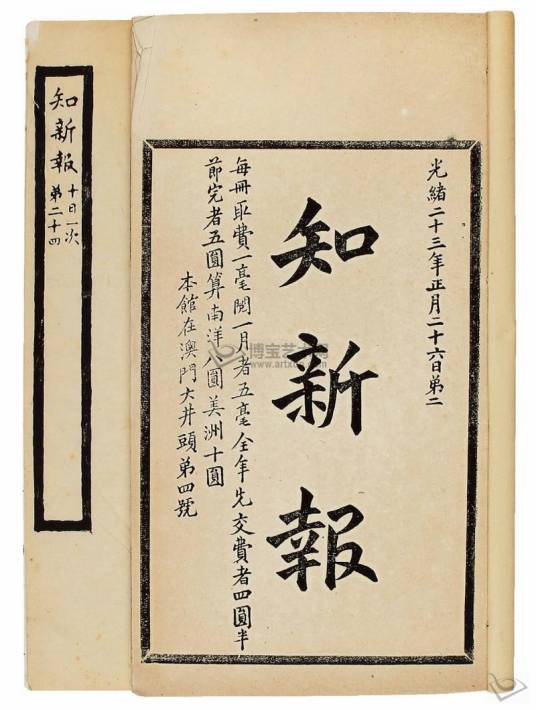 光緒二十三年正月二十六日第二
知新報
每冊取費一毫閱一月者五毫全年先交費者四圓半
節完者五圓算南洋八圓美洲十圓
本館在澳門大井頭第四號
知新報
十日一次
第二十四
博宝艺术网